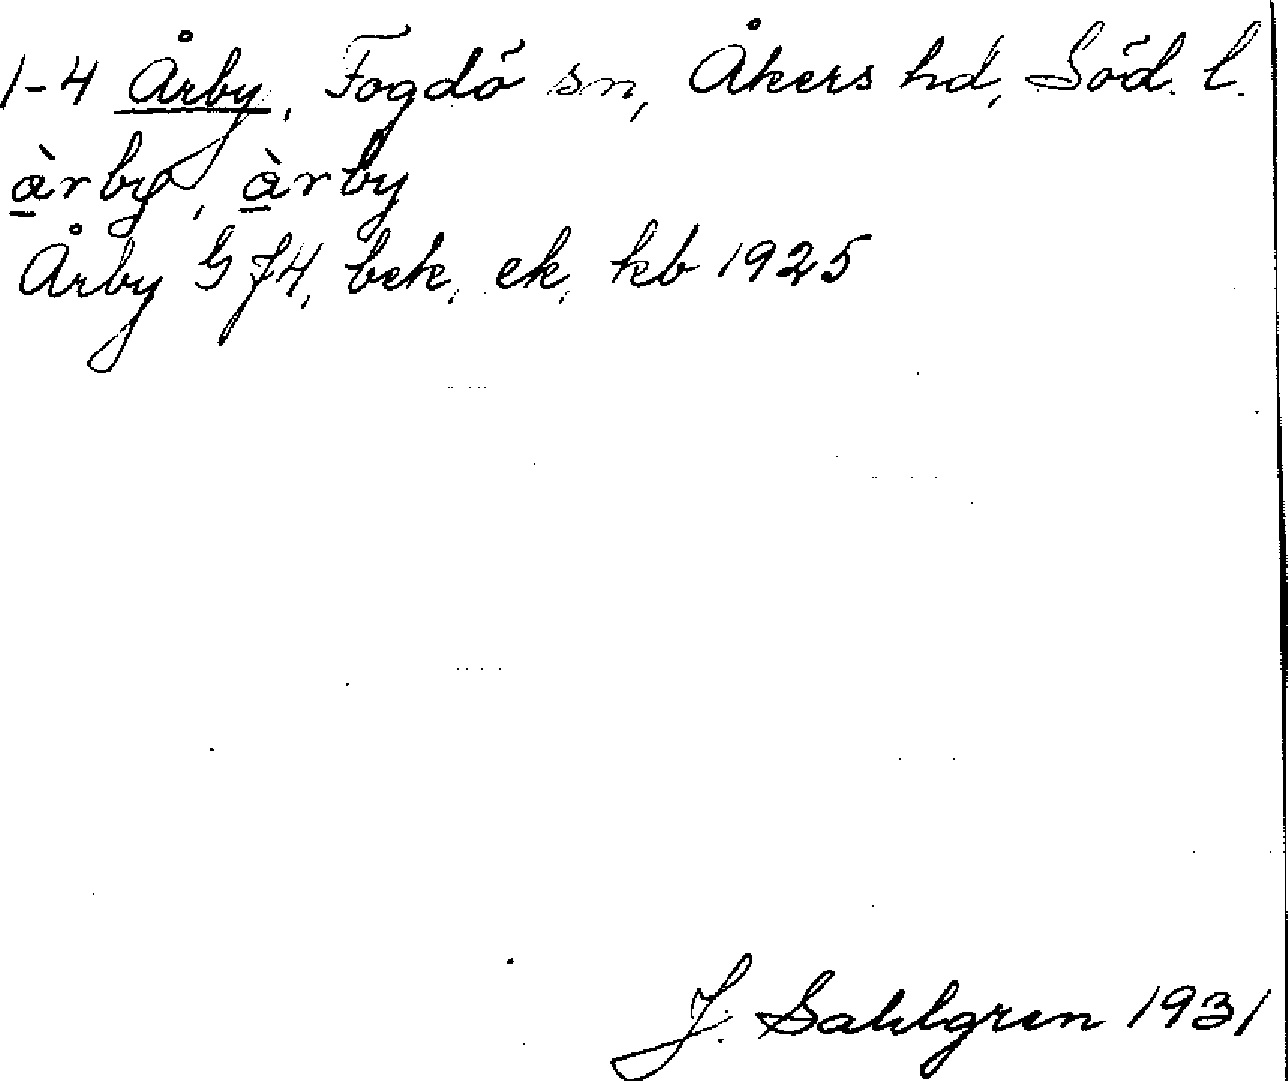 1-4 Årby, Fogdö sn, Åkers hd, Söd. l.
à̲rby, à̲rby
Årby G J4, bek, ek, kb 1925
J. Sahlgren 1931